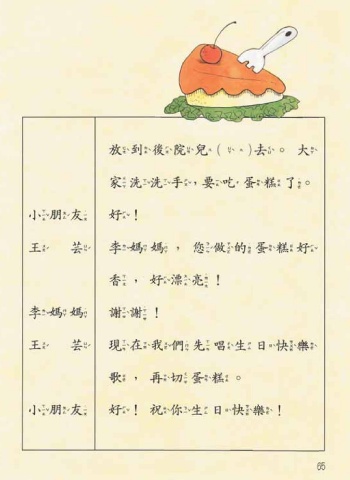 放到後院兒(ㄦ)去。大
家洗洗手,要吃蛋糕了。
小朋友 好!
王 芸 李媽媽,您做的蛋糕好
香,好漂亮!
李媽媽 謝謝!
王 芸 現在我們先唱生日快樂
歌,再切蛋糕。
小朋友 好!祝你生日快樂!
65